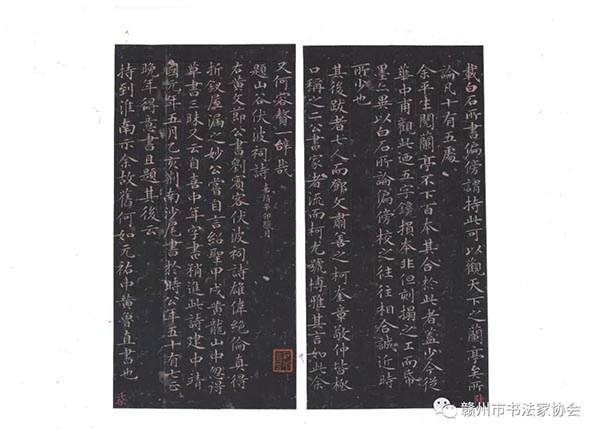 載白石所書偏傍譜持此可以觀天下之蘭亭矣所
論凡十有五處
余平生閱蘭亭不下百本其合於此者蓋少今從
華中甫觀此迺五字鑱損本非但刻搨之工而帋
墨亦異以白石所論偏傍校之往往相合誠近時
所少也
其後跋者七人而鄧文肅善之柯奎章敬仲皆極
口稱之二公書家者流而柯尤號博雅其言如此余
又何容贅一辭哉
題山谷伏波祠詩 嘉靖辛卯
右黃文節公書劉賓客伏波祠詩雄偉絕倫真得
折釵屋漏之妙公嘗自言紹聖甲戌黃龍山中忽得
草書三昧又云自喜中年字書稍進此詩建中靖
國元年五月乙亥荊南沙尾書於時公年五十有七正
晚年得意書且題其後云
持到淮南示余故舊何如元祐中黃魯直書也
赣州市书法家协会